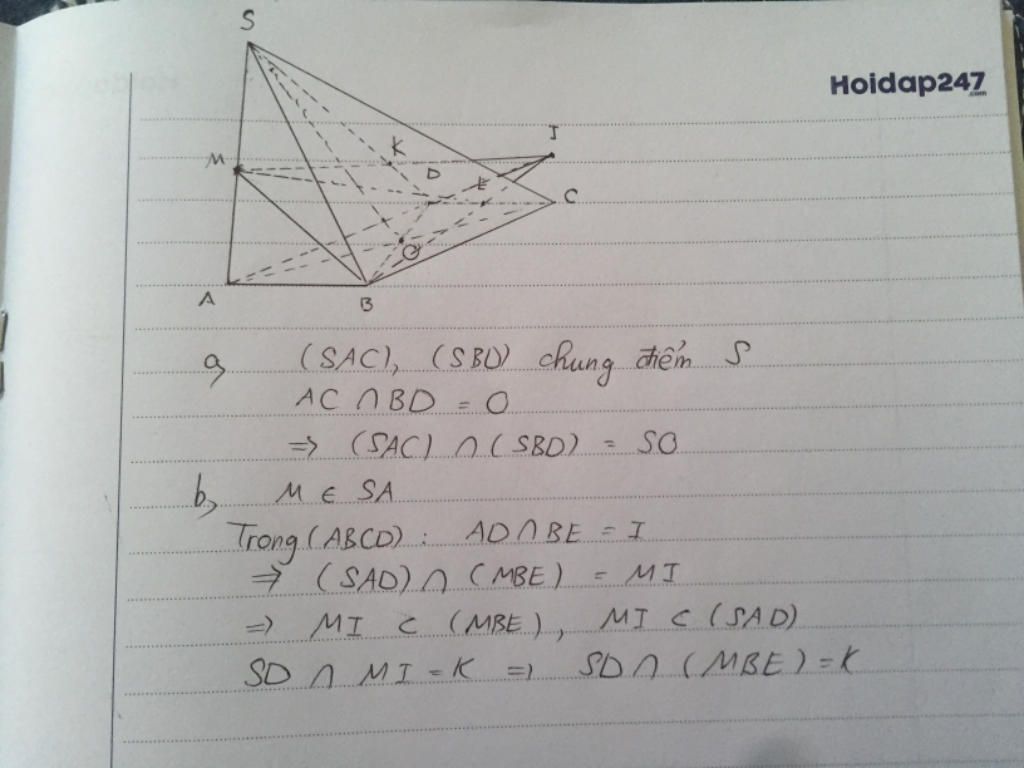 S
Hoidap247
.com
M
K
I
D
E
C
O
A
B
a, (SAC), (SBD) chung điểm S
AC ∩ BD = O
=> (SAC) ∩ (SBD) = SO
b, M ∈ SA
Trong (ABCD) : AD ∩ BE = I
=> (SAD) ∩ (MBE) = MI
=> MI ⊂ (MBE), MI ⊂ (SAD)
SD ∩ MI = K => SD ∩ (MBE) = K